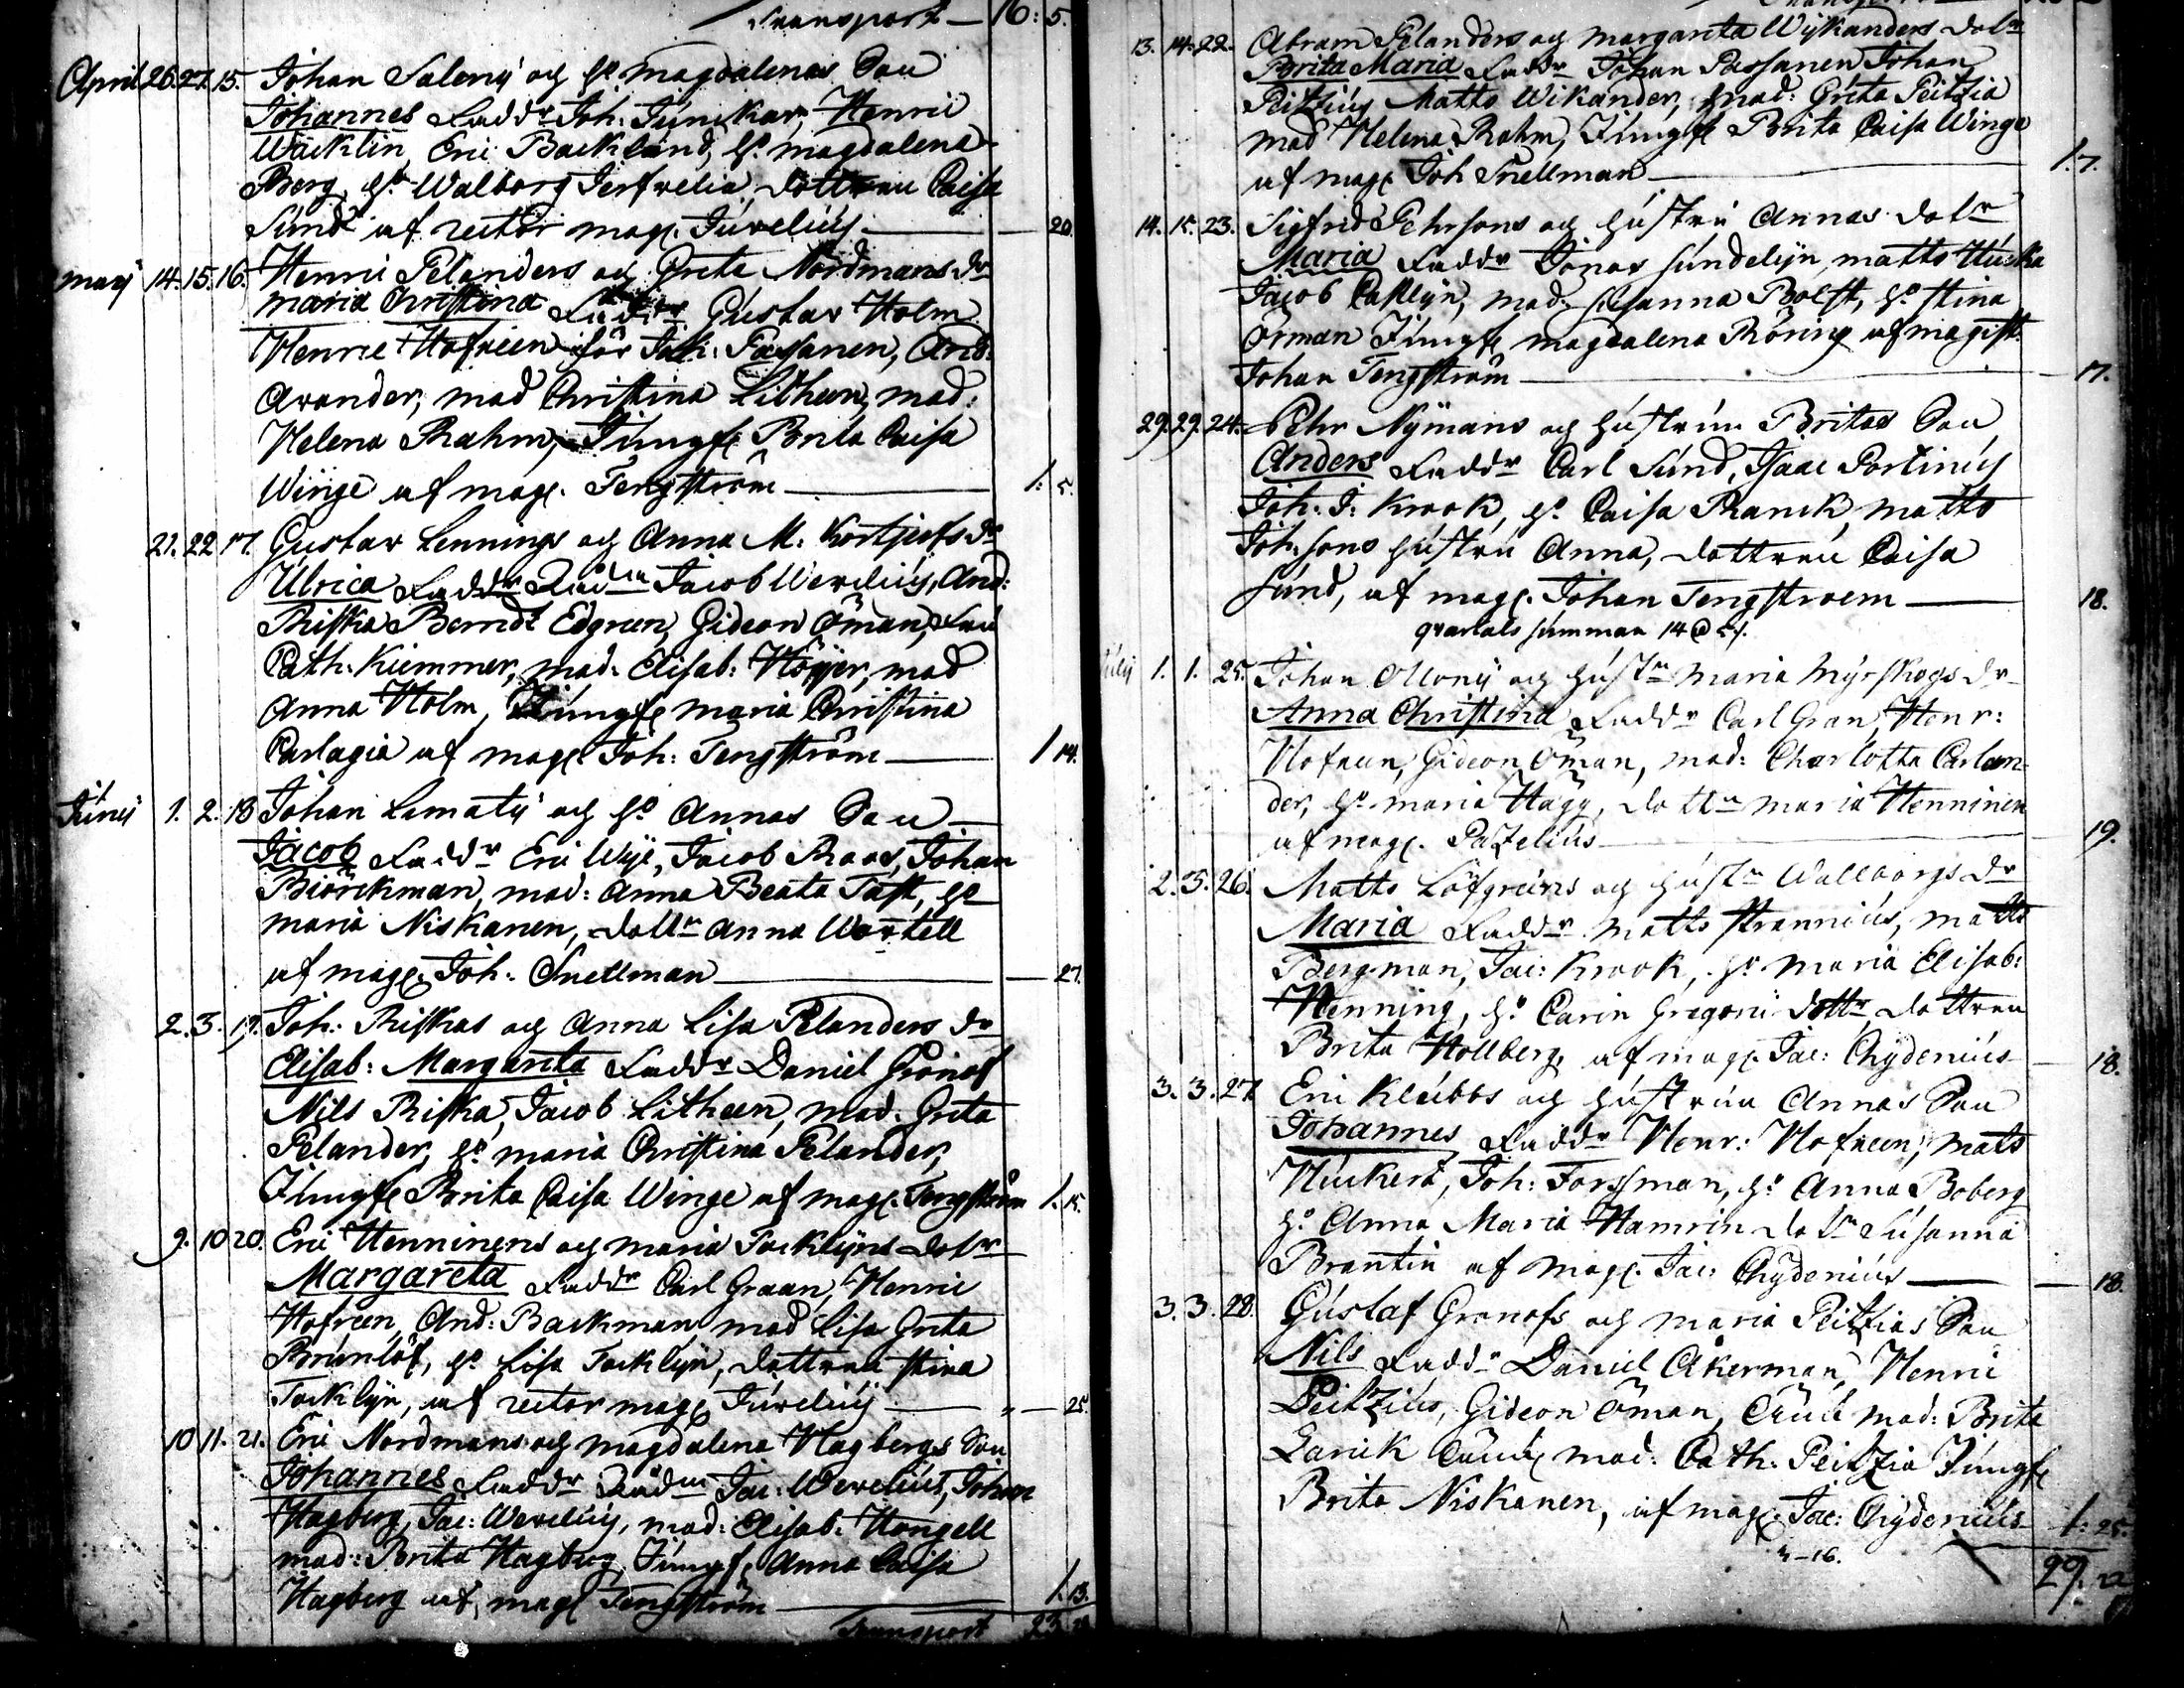 Transport — 16: 5.
April 26. 27. 15. Johan Saleny och h:o Magdalenas Son
Johannes Fadd:r Joh: Junckar, Henric
Wacklin, Eric Backlund, h:o Magdalena
Berg, h:o Walborg Jerfvelia, dottren Caisa
Sund af rector mag: Juvelius — 20.
Maij 14. 15. 16. Henric Pelanders och Greta Nordmans d:r
Maria Christina Fadd:r Gustav Holm
Henric Hofreen för Joh: Passanen, And:
Avander, mad Christina Litheen, mad:
Helena Rahm, Jungf: Brita Caisa
Winge af mag: Tengström — 1. 5.
21. 22. 17. Gustav Lennings och Anna M: Kortjefs d:r
Ulrica Fadd:r Rådm Jacob Werelius, And:
Riska Berndt Edgreen, Gideon Öman, Fru
Cath: Kiemmer, mad: Elisab: Höijer, mad
Anna Holm, Jungf: Maria Christina
Carlagia af mag: Joh: Tengström — 1 14.
Junij 1. 2. 18 Johan Lematy och h:o Annas Son —
Jacob Fadd:r Eric Wije, Jacob Roos, Johan
Biörckman, mad: Anna Beata Tast, h:o
Maria Niskanen, dott:r Anna Wortell
af mag: Joh: Snellman — 27.
2. 3. 19. Joh: Riskas och Anna Lisa Pelanders d:r
Elisab: Margareta Fadd:r Daniel Gronof
Nils Riska, Jacob Litheen, mad: Greta
Pelander, h:o Maria Christina Pelander,
Jungf: Brita Caisa Winge af mag: Tengström 1. 15.
9. 10 20. Eric Henninens och Maria Tocklijns dot:r
Margareta Fadd:r Carl Graan, Henric
Hofreen, And: Backman, mad Lisa Greta
Brunlöf, h:o Lisa Tocklijn, dottren Stina
Tocklijn, af rector mag: Juvelius — 25.
10 11. 21. Eric Nordmans och Magdalena Hagbergs Son
Johannes Fadd:r Rådm Jac: Werelius, Johan
Hagberg, Jac: Werelius, mad: Elisab: Hongell
mad: Brita Hagberg, Jungf: Anna Caisa
Hagberg af mag: Tengström — 1. 13.
Transport 23
13. 14. 22. Abram Pelanders och Margareta Wijkanders dot:r
Brita Maria Fadd:r Johan Passanen Johan
Peitzius Matts Wikander, mad: Greta Peitzia
mad Helena Rahm, Jungf: Brita Caisa Winge
af mag: Joh Snellman — 1. 7.
14. 15. 23. Sigfrid Pehrsons och hustru Annas dot:r
Maria Fadd:r Jonas Sundelijn, Matts Huska
Jacob Castlijn, mad: Susanna Bolst, h:o Stina
Örman Jungf: Magdalena Röring af magist:
Johan Tengström — 17.
29. 29. 24. Pehr Nijmans och hustrun Britas Son
Anders Fadd:r Carl Sund, Isaac Portinus
Joh: J: Krook, h:o Caisa Ranck, Matts
Joh:sons hustru Anna, dottren Caisa
Sund, af mag: Johan Tengstroem — 18.
qvartals summan 14
Julij 1. 1. 25. Johan Ollony och hust:u Maria Myrskogs d:r
Anna Christina Fadd:r Carl Gran, Henr:
Hofreen, Gideon Öman, mad: Charlotta Carlan=
der, h:o Maria Hägg, dott:n Maria Henninen
af mag: Pazelius — 19.
2. 3. 26. Matts Löfgreens och hust:u Wallborgs d:r
Maria Fadd:r Matts Strannius, Matts
Bergman, Jac: Krook, h:o Maria Elisab:
Henning, h:o Carin Gregori dott:r dottren
Brita Hollberg af mag: Jac: Chydenius — 18.
3. 3. 27 Eric Klubbs och hustrun Annas Son
Johannes Fadd:r Henr: Hofreen, Mats
Huckert, Joh: Forssman, h:o Anna Boberg
h:o Anna Maria Hamrin dot:n Susanna
Brantin af mag: Jac: Chydenius — 18.
3. 3. 28. Gustaf Gronofs och Maria Peitzias Son
Nils Fadd:r Daniel Åkerman, Henric
Peitzius, Gideon Öman, mad: Brita
mad: Cath: Peitzia Jungf:
Brita Niskanen, af mag: Jac: Chydenius 1. 25.
29. 22